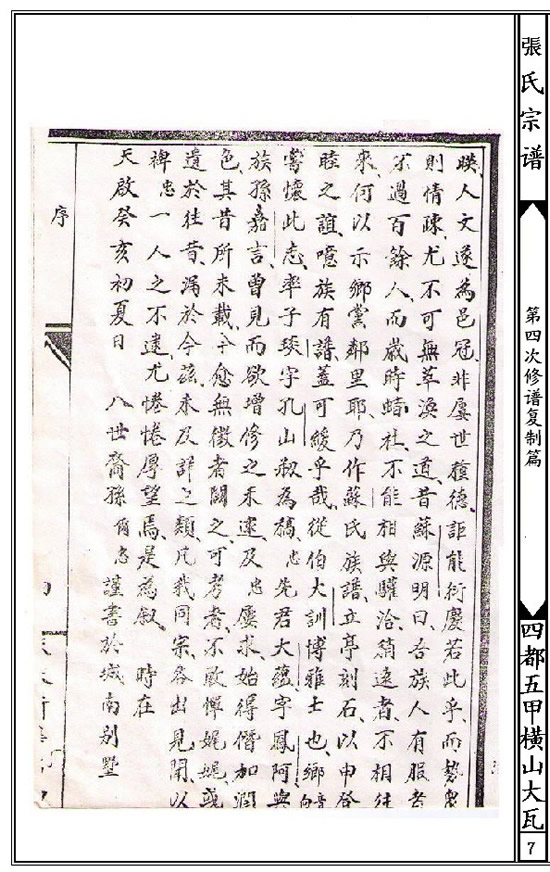 張氏宗谱
第四次修谱复制篇
四都五甲横山大瓦
7
暎人文遂為邑冠非屢世積德詎能衍慶若此乎而勢
則情疎尤不可無萃渙之道昔蘇源明曰吾族人有服者
不過百餘人而歲時蜡社不能相與驩洽稍遠者不相往
來何以示鄉黨鄰里耶乃作蘇氏族譜立亭刻石以申
睦之誼噫族有譜蓋可緩乎哉從伯大訓博雅士也鄉
嘗懷此志率子琰字孔山叔為稿忠先君大蘊字鳳阿與
族孫嘉言曾見而欲增修之未逮及忠屢求始得僭加潤
色其昔所未載今愈無徵者闕之可考者不敢憚娓娓或
遺於往昔漏於今茲未及詳之類凡我同宗各出見聞以
裨忠一人之不逮尤惓惓厚望焉是為叙 時在
天啟癸亥初夏日 八世裔孫 忠謹書於城南别墅
序